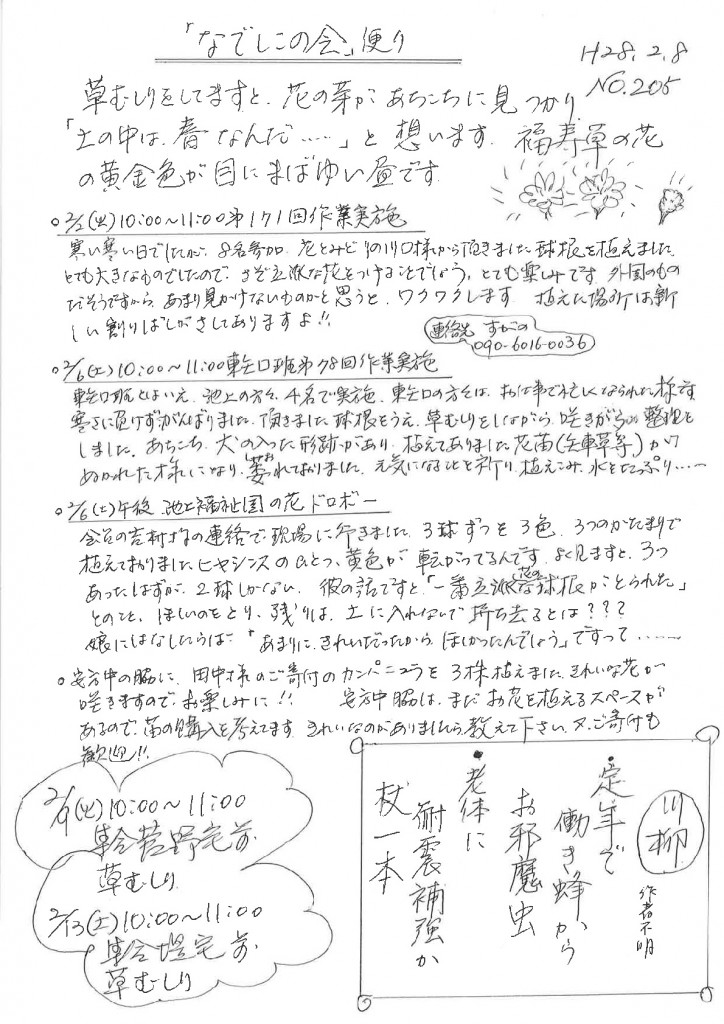 「なでしこの会」便り
H28.2.8
NO.205
草むしりをしてますと、花の芽があちこちに見つかり
「土の中は、春なんだ……」と想います。福寿草の花
の黄金色が目にまばゆい昼です
○2/2(火)10:00~11:00第171回作業実施
寒い寒い日でしたが、8名参加。花とみどりの川口様から頂きました球根を植えました。
とても大きなものでしたので、さぞ立派な花をつけることでしょう。とても楽しみです 外国のもの
だそうですから、あまり見かけないものかと思うと、ワクワクします 植えた場所は新
しい割りばしがさしてありますよ!!
連絡先 すがの
090-6016-0036
○2/6(土)10:00~11:00東矢口班第78回作業実施
東矢口班とはいえ、池上の方々、4名で実施、東矢口の方々は、お仕事で忙しくなられた様です
寒さに負けずがんばりました。頂きました球根をうえ、草むしりをしながら、咲きがらの整理と
しました。あちこち、犬の入った形跡があり、植えてありました花苗(矢車草等)がひ
ぬかれた様になり、萎れておりました、元気になることを祈り、植えこみ、水をたっぷり……
○2/6(土)午後 池上福祉園の花ドロボー
会员の吉村様の連絡で現場に行きました。3球ずつを3色、3つのかたまりで
植えておりましたヒヤシンスのひとつ、黄色が転がってるんです。よく見ますと、3つ
あったはずが、2球しかない、彼の話ですと「一番立派な花の球根がとられた」
とのこと、ほしいのをとり、残りは、土に入れないで持ち去るとは???
娘にはなしたらば…「あまりに、きれいだったから ほしかったんでしょう」ですって……
○安方中の脇に、田中様のご寄付のカンパニュラを3株植えました。きれいな花が
咲きますので、お楽しみに!! 安方中脇は、まだお花を植えるスペースが
あるので、苗の購入を考えてます。きれいなのがありましたら、教えて下さい。又、ご寄付も
歓迎!!
2/9(火)10:00~11:00
集合菅野宅前
草むしり
2/13(土)10:00~11:00
集合堤宅前
草むしり
川柳
作者不明
●定年で
働き蜂から
お邪魔虫
●老体に
耐震補強か
杖一本